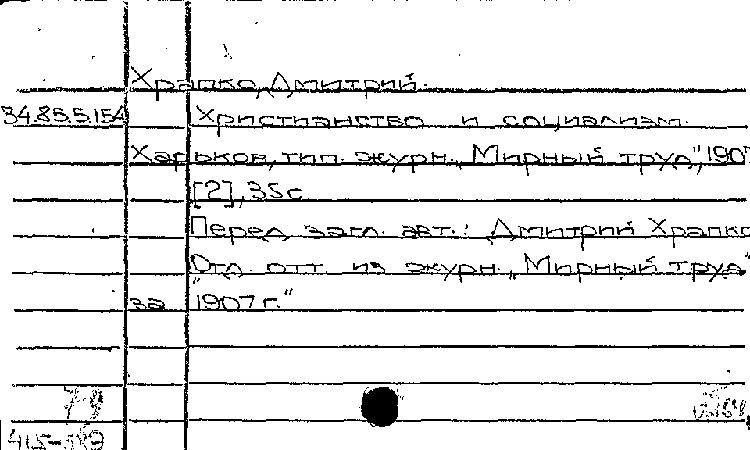 Храпко, Дмитрий.
34.85.5.154
Христианство и социализм.
Харьков, тип. журн. „Мирный труд", 1907
[2], 35 с
Перед загл. авт.: Дмитрий Храпко
Отд. отт. из журн. „Мирный труд"
за "1907 г."